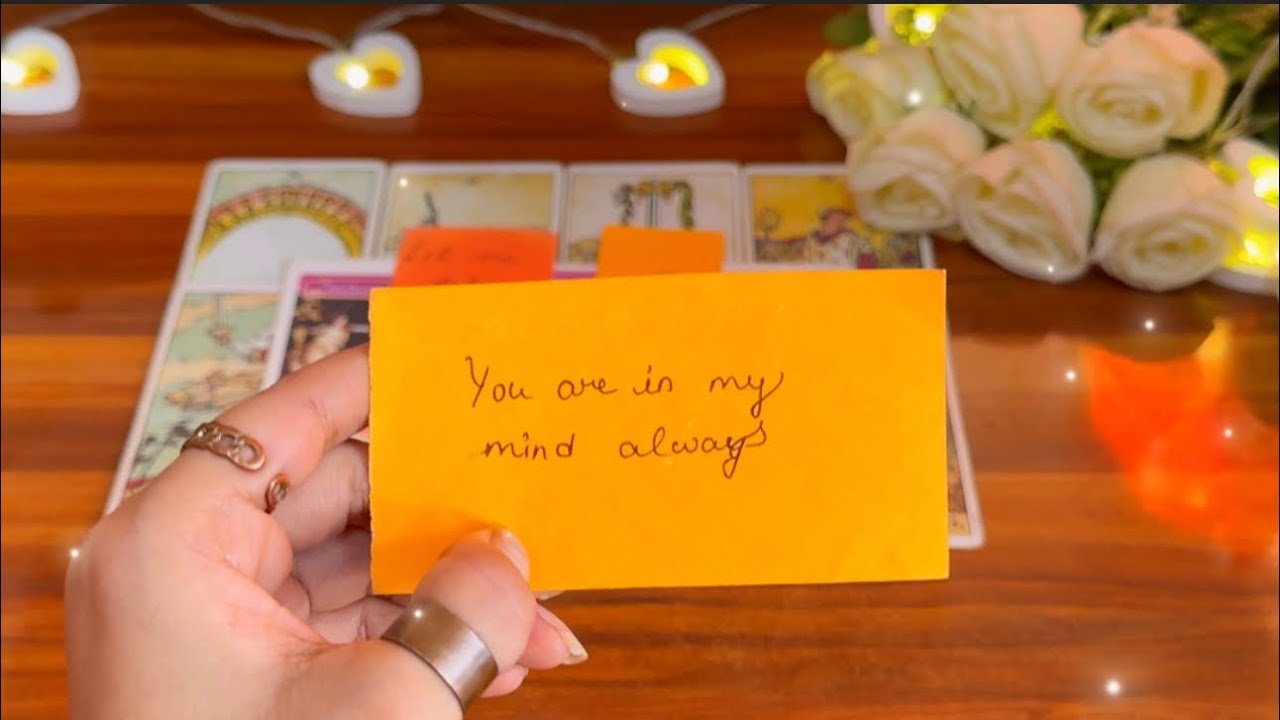 Let me
You are in my
mind always